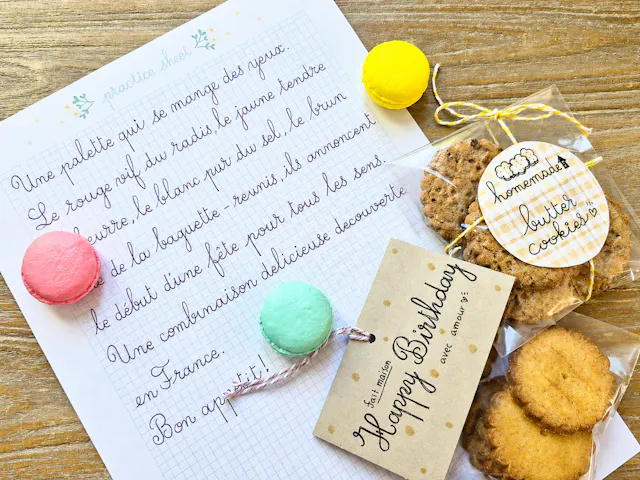 practice sheet
Une palette qui se mange des yeux.
Le rouge vif du radis, le jaune tendre
beurre, le blanc pur du sel, le brun
de la baguette - reunis, ils annoncent
le début d'une fête pour tous les sens.
Une combinaison délicieuse decouverte
en France.
Bon appétit!
homemade
butter
cookies
fait maison
Happy Birthday
avec amour